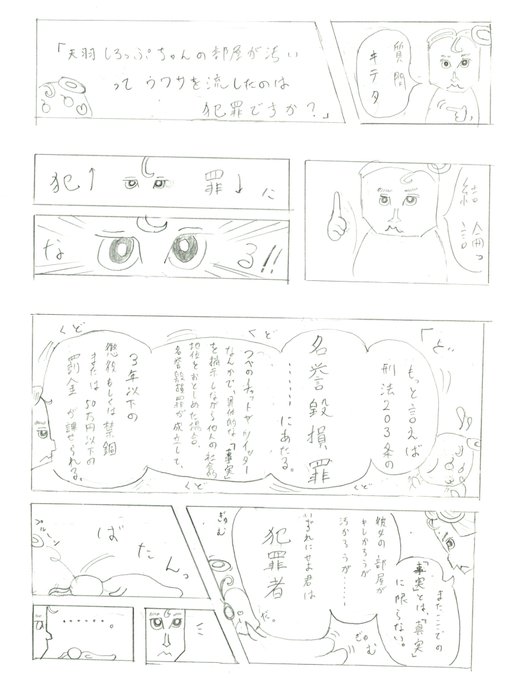 質問
キテタ
「天羽しろっぷちゃんの部屋が汚い
ってウワサを流したのは
犯罪ですか?」
結論っ
犯↑罪↓に
な
る!!
「ど
もっと言えば
刑法203条の
名誉毀損罪
……にあたる。
くど
くど
くど
くど
を提示しながら他人の社会的
地位をおとしめた場合、
名誉毀損罪が成立して、
3年以下の
懲役もしくは禁錮
または50万円以下の
罰金が課せられる。
またここでの
「事実」とは、「真実」
に限らない。
彼女の部屋が
キレかろうが
汚かろうが……
いずれにせよ君は
犯罪者
だ。
ばたんっ
……。